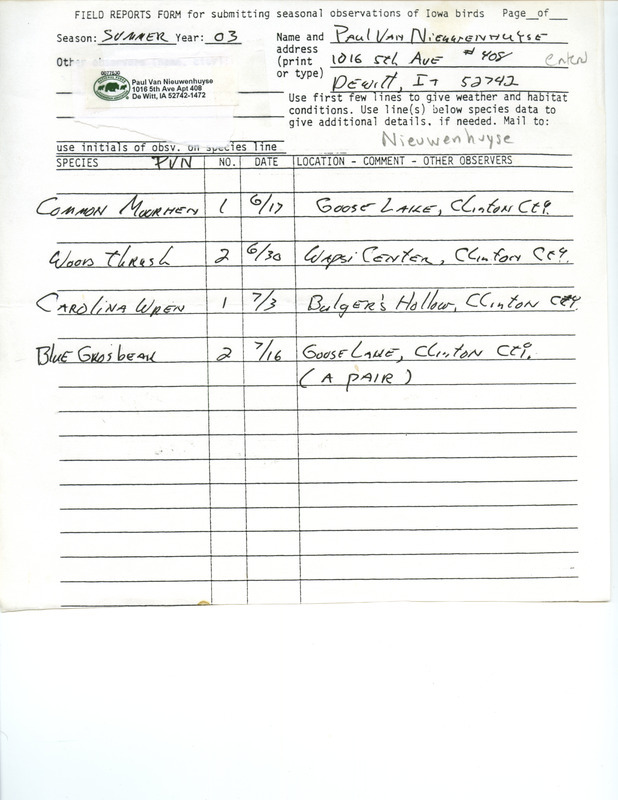 FIELD REPORTS FORM for submitting seasonal observations of Iowa birds Page__of___
Season: SUMMER Year: 03 Name and PAUL VAN NIEUWENHUYSE
address 1016 5th AVE #408
(print
or type) DEWITT, IA 52742
Paul Van Nieuwenhuyse
1016 5th Ave Apt 408
De Witt, IA 52742-1472
Use first few lines to give weather and habitat
conditions. Use line(s) below species data to
give additional details, if needed. Mail to:
Nieuwenhuyse
use initials of obsv. on species line
SPECIES PVN NO. DATE LOCATION - COMMENT - OTHER OBSERVERS
COMMON MOORHEN 1 6/17 GOOSE LAKE, CLINTON CTY.
WOOD THRUSH 2 6/30 WAPSI CENTER, CLINTON CTY.
CAROLINA WREN 1 7/3 Bulger's Hollow, CLINTON CTY.
BLUE GROSBEAK 2 7/16 GOOSE LAKE, CLINTON CTY.
(A PAIR)